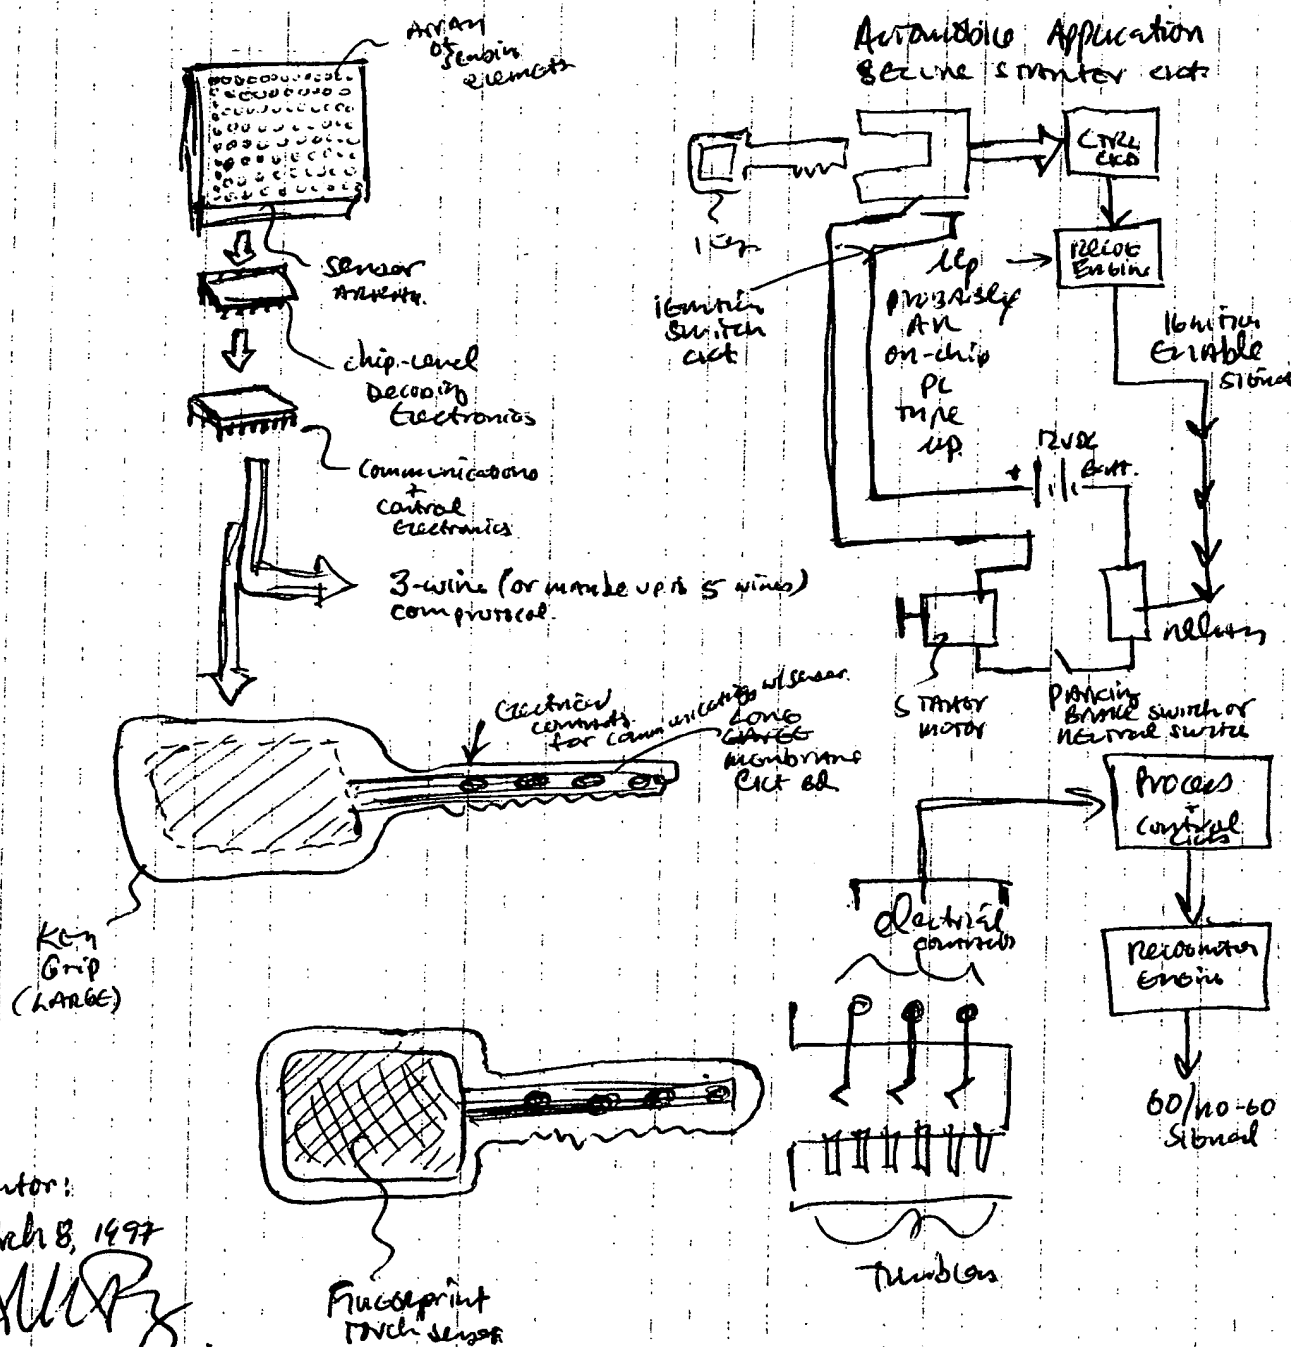 Array
of
Sensing
elements
Sensor
Array.
chip-level
Decoding
Electronics
Communications
+
Control
Electronics
3-wire (or maybe up to 5 wires)
com protocol.
Electrical
contacts
for communicating w/ sensor.
Long
membrane
Ckt Bd
Key
Grip
(LARGE)
Fingerprint
Touch sensor
March 8, 1997
Automobile Application
Secure Starter ckt
Key
Ctrl
Ignition
Switch
ckt
Recog
Engine
µp
probably
an
on-chip
PC
type
µp.
Ignition
Enable
Signal
12VDC
+
Batt.
relay
Starter
motor
Parking
Brake switch or
neutral switch
Process
+
Control
Ckts
electrical
contacts
Recognition
Engine
GO/NO-GO
Signal
Tumblers